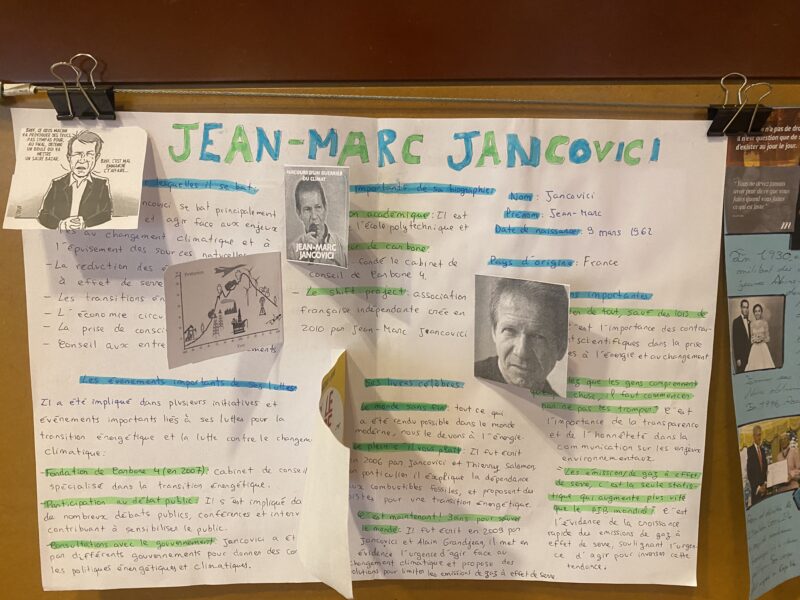 JEAN-MARC JANCOVICI
BIHH, LE GROS MACRON
VA PROVOQUER DES TRUCS
PAS SYMPAS POUR,
AU FINAL, OBTENIR
UN BOULE QUI VA
METTRE
UN SALAIRE BAZAR.
BIHH, C'EST MAL
EMMANCHÉ
C'T'AFFAIRE...
lesquelles il se bat
Jancovici se bat principalement
et agir face aux enjeux
au changement climatique et à
l'épuisement des sources naturelles
- La réduction des
à effet de serre
- Les transitions
- L'économie circu
- La prise de consci
- Conseil aux entre
Évolution
PARCOURS D'UN GUERRIER
DU CLIMAT
JEAN-MARC
JANCOVICI
importants de sa biographie
académique : Il est
l'école polytechnique et
de carbone
fondé le cabinet de
conseil de Carbone 4.
- Le shift project : association
française indépendante créée en
2010 par Jean-Marc Jancovici
Nom : Jancovici
Prénom : Jean-Marc
Date de naissance : 9 mars 1962
Pays d'origine : France
Les évènements importants de ses luttes
Il a été impliqué dans plusieurs initiatives et
évènements importants liés à ses luttes pour la
transition énergétique et la lutte contre le changem
climatique :
- Fondation de Carbone 4 (en 2007) : cabinet de conseil
spécialisé dans la transition énergétique.
- Participation au débat public : Il s'est impliqué da
de nombreux débats publics, conférences et interv
contribuant à sensibiliser le public.
- Consultations avec le gouvernement : Jancovici a ét
par différents gouvernements pour donner des con
les politiques énergétiques et climatiques.
Ses livres célèbres
Le monde sans fin : tout ce qui
a été rendu possible dans le monde
moderne, nous le devons à l'énergie.
Le plein s'il vous plaît : Il fut écrit
en 2006 par Jancovici et Thierry Salomon,
particulier il explique la dépendance
aux combustibles fossiles, et proposent des
pistes pour une transition énergétique.
C'est maintenant ! 3 ans pour sauver
le monde : Il fut écrit en 2009 par
Jancovici et Alain Grandjean, il met en
évidence l'urgence d'agir face au
changement climatique et propose des
solutions pour limiter les émissions de gaz à effet de serre.
importantes
de tout, sauf des lois de
c'est l'importance des contrai-
scientifiques dans la prise
à l'énergie et au changement
que les gens comprennent
chose, il faut commencer
ne pas les tromper" : C'est
l'importance de la transparence
et de l'honnêteté dans la
communication sur les enjeux
environnementaux
- "Les émissions de gaz à effet
de serre, c'est la seule statis-
tique qui augmente plus vite
que le PIB mondial" : C'est
l'évidence de la croissance
rapide des émissions de gaz à
effet de serre, soulignant l'urgen-
ce d'agir pour inverser cette
tendance.
n'a pas de dro
il n'est question que de s
d'exister au jour le jour.
"Vous ne devez jamais
avoir peur de ce que vous
faites quand vous faites
ce qui est juste"
En 1930